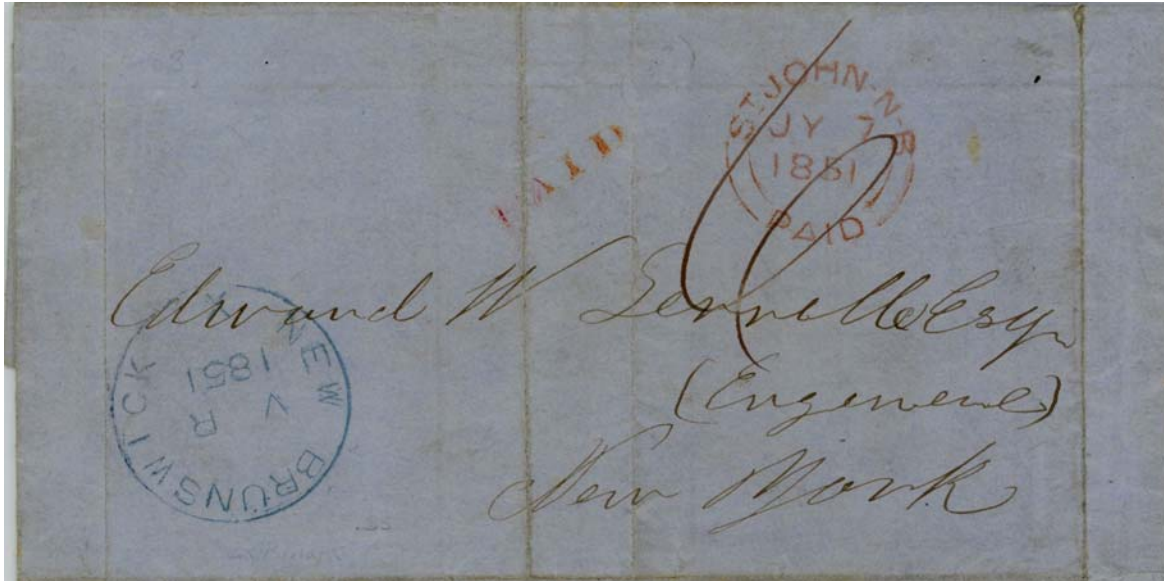 PAID
ST JOHN·N-B
JY 7
1851
PAID
Edward W Serrell Esqr
(Engeneer)
New York
NEW BRUNSWICK
V R
1851